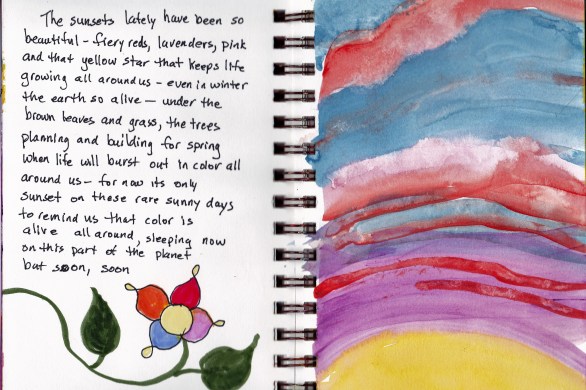 The sunsets lately have been so
beautiful - fiery reds, lavenders, pink
and that yellow star that keeps life
growing all around us - even in winter
the earth so alive - under the
brown leaves and grass, the trees
planning and building for spring
when life will burst out in color all
around us - for now its only
sunset on those rare sunny days
to remind us that color is
alive all around, sleeping now
on this part of the planet
but soon, soon